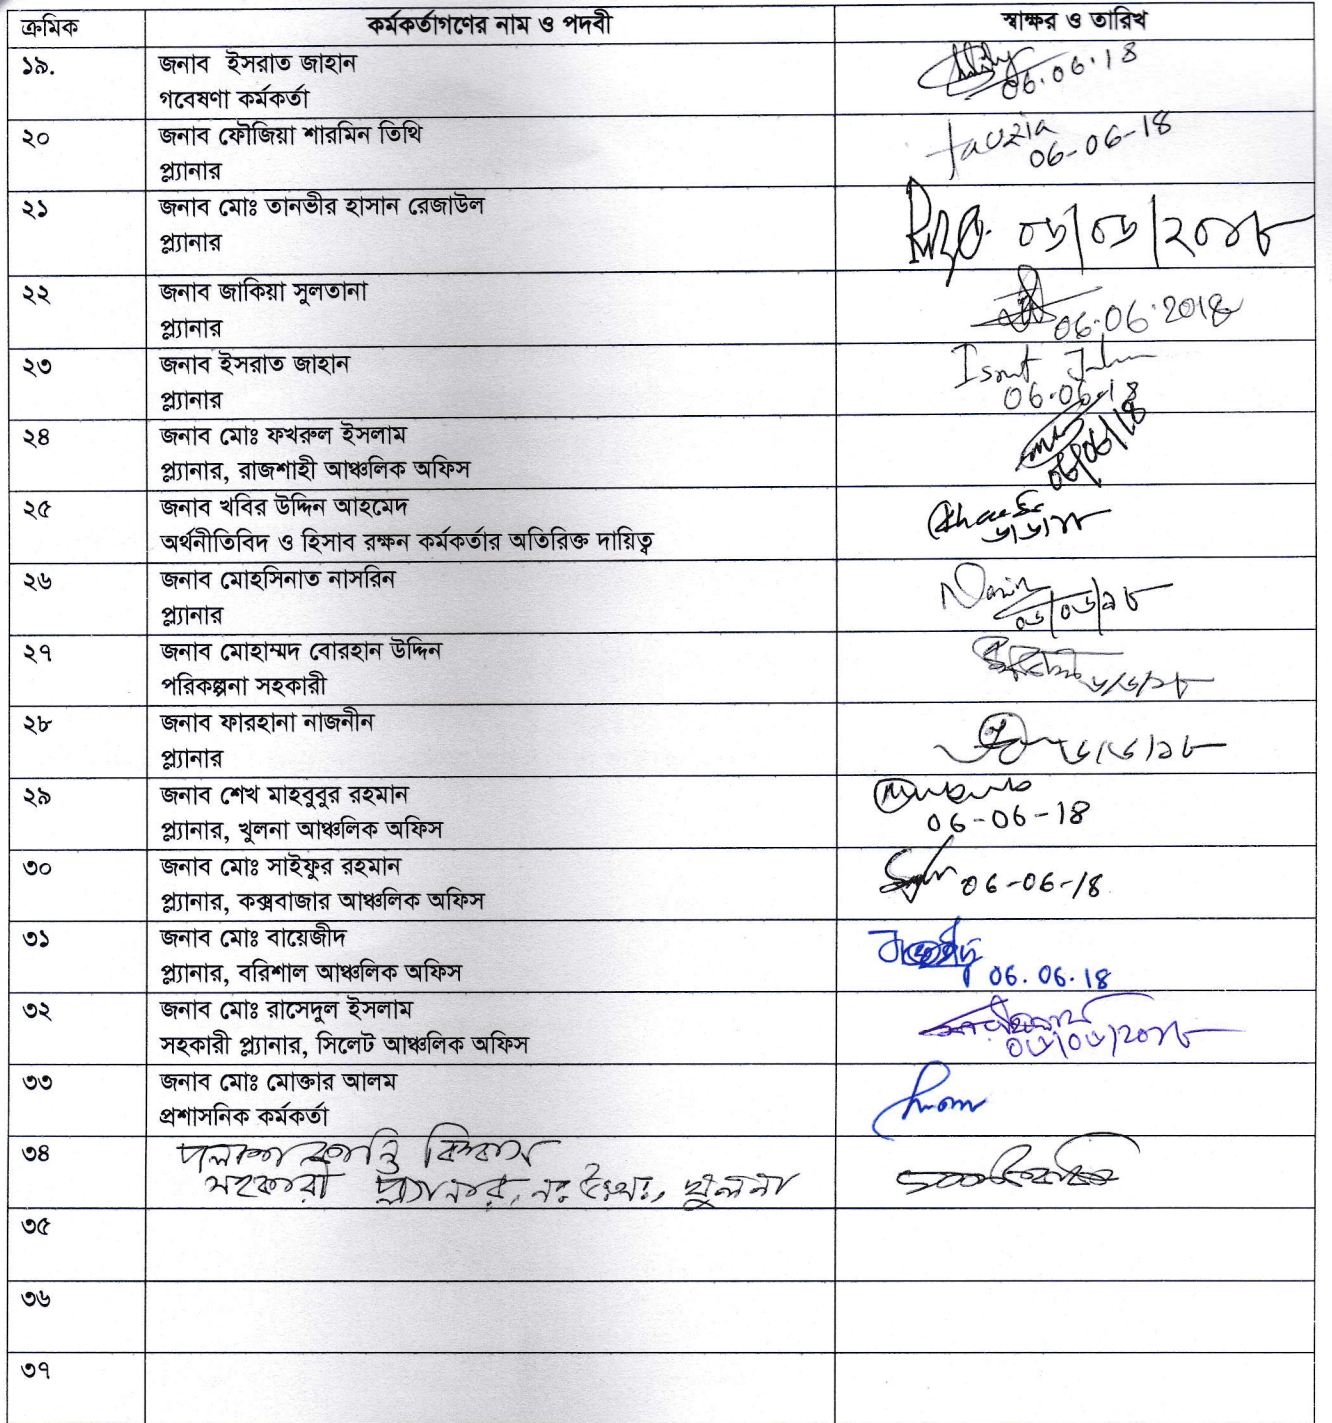 ক্রমিক কর্মকর্তাগণের নাম ও পদবী স্বাক্ষর ও তারিখ
১৯. জনাব ইসরাত জাহান
গবেষণা কর্মকর্তা 06.06.18
২০ জনাব ফৌজিয়া শারমিন তিথি fauzia
প্ল্যানার 06-06-18
২১ জনাব মোঃ তানভীর হাসান রেজাউল
প্ল্যানার ০৬/০৬/২০১৮
২২ জনাব জাকিয়া সুলতানা
প্ল্যানার 06.06.2018
২৩ জনাব ইসরাত জাহান Israt Jahan
প্ল্যানার 06.06.18
২৪ জনাব মোঃ ফখরুল ইসলাম
প্ল্যানার, রাজশাহী আঞ্চলিক অফিস 06/06/18
২৫ জনাব খবির উদ্দিন আহমেদ
অর্থনীতিবিদ ও হিসাব রক্ষন কর্মকর্তার অতিরিক্ত দায়িত্ব ৬/৬/১৮
২৬ জনাব মোহসিনাত নাসরিন
প্ল্যানার ০৬/০৬/১৮
২৭ জনাব মোহাম্মদ বোরহান উদ্দিন
পরিকল্পনা সহকারী ৬/৬/১৮
২৮ জনাব ফারহানা নাজনীন
প্ল্যানার ৬/৬/১৮
২৯ জনাব শেখ মাহবুবুর রহমান
প্ল্যানার, খুলনা আঞ্চলিক অফিস 06-06-18
৩০ জনাব মোঃ সাইফুর রহমান
প্ল্যানার, কক্সবাজার আঞ্চলিক অফিস 06-06-18
৩১ জনাব মোঃ বায়েজীদ
প্ল্যানার, বরিশাল আঞ্চলিক অফিস 06.06.18
৩২ জনাব মোঃ রাসেদুল ইসলাম
সহকারী প্ল্যানার, সিলেট আঞ্চলিক অফিস ০৬/০৬/২০১৮
৩৩ জনাব মোঃ মোক্তার আলম
প্রশাসনিক কর্মকর্তা
৩৪ পলাশ কান্তি বিশ্বাস
সহকারী প্ল্যানার, খুলনা
৩৫
৩৬
৩৭